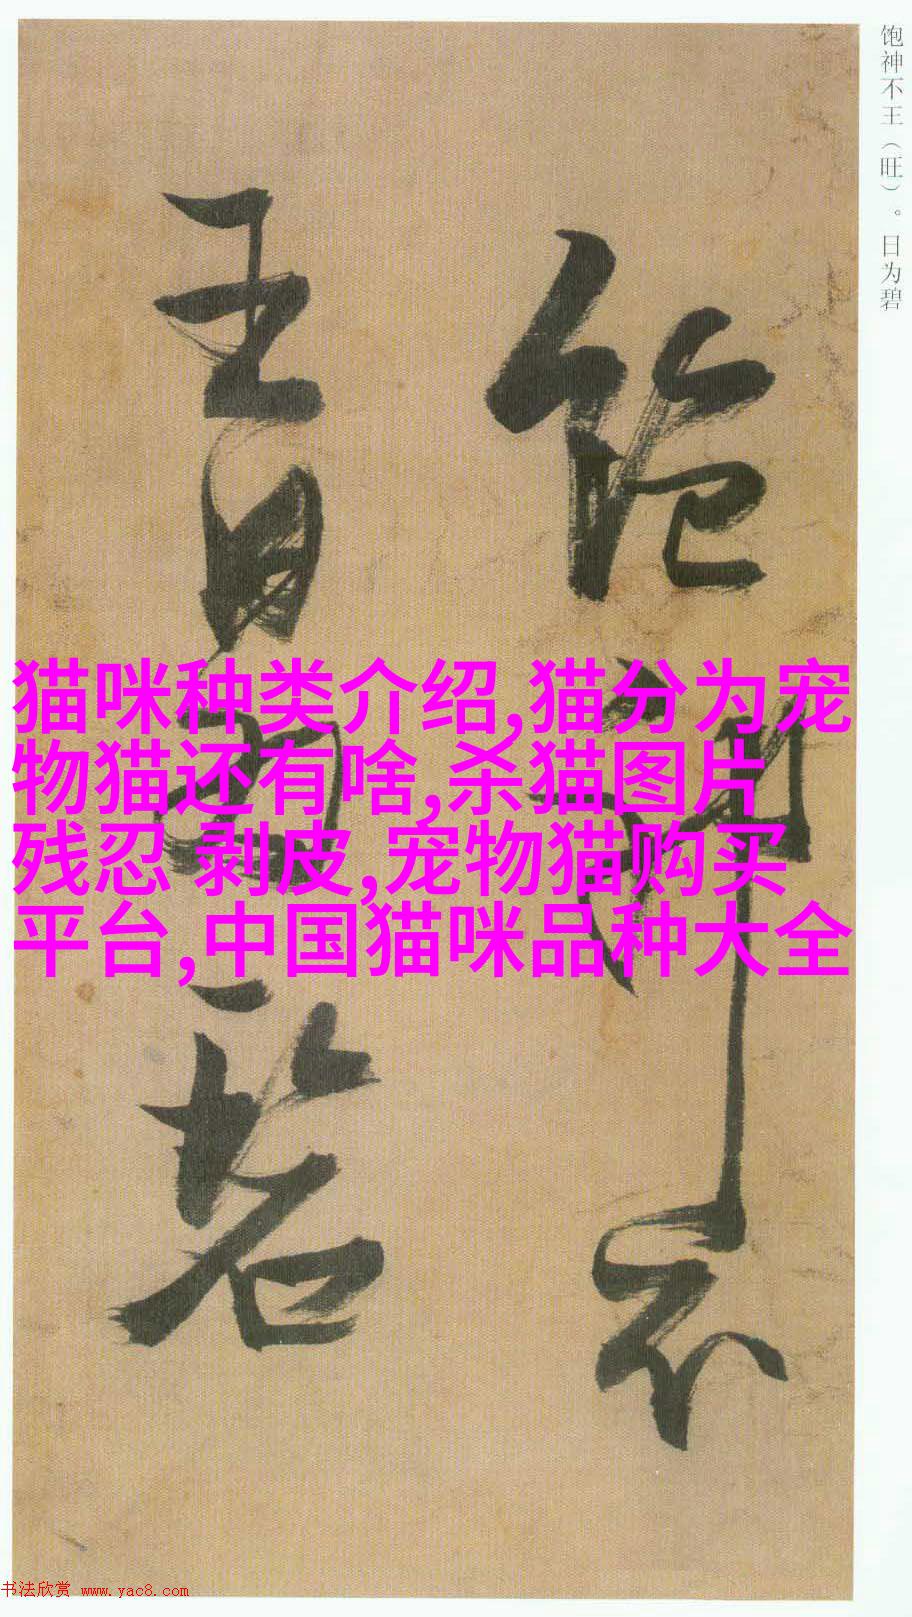 饱神不王（旺）。日为碧
饱神不
王日为碧
猫咪种类介绍,猫分为宠
物猫还有啥,杀猫图片
残忍 剥皮,宠物猫购买
平台,中国猫咪品种大全
书法欣赏 www.yac8.com